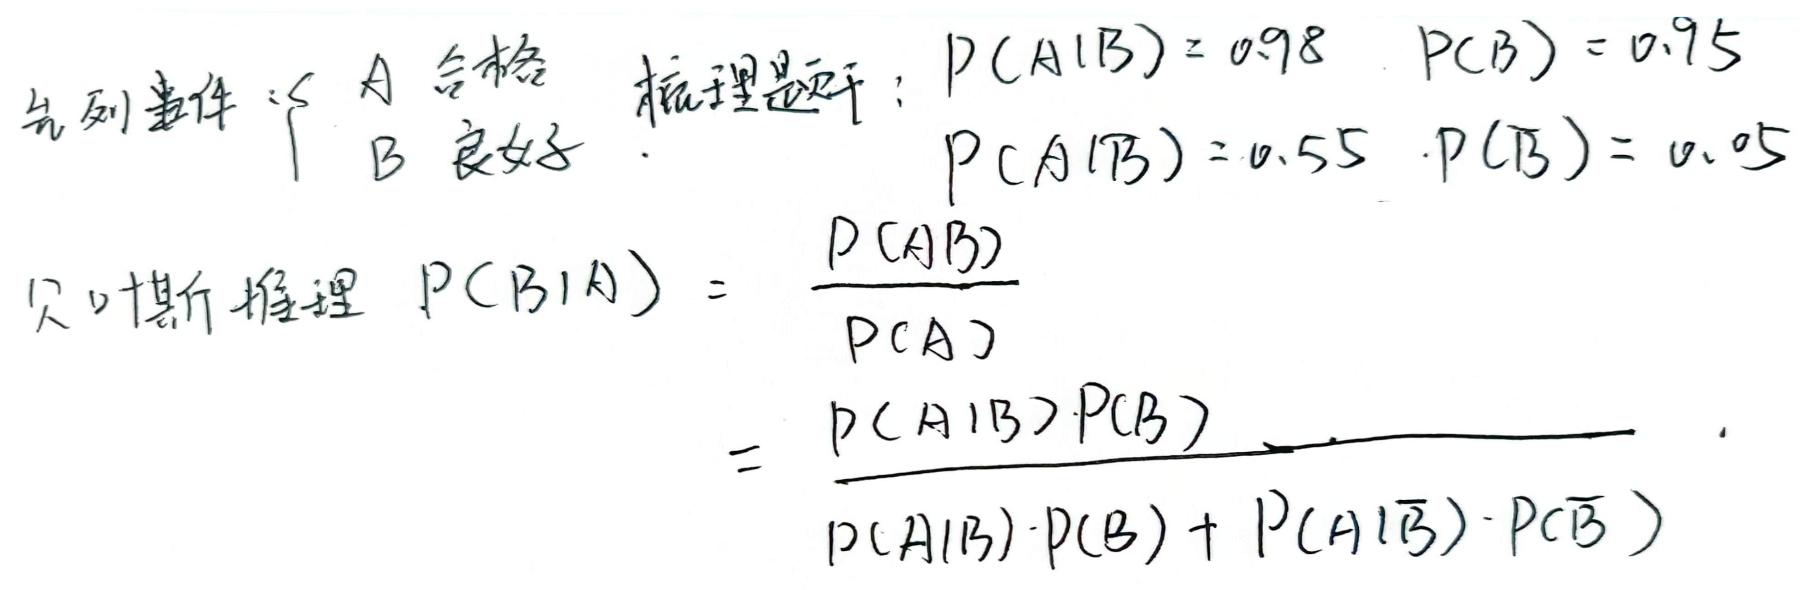 先列事件：{ A 合格 梳理题干： P(A|B) = 0.98 P(B) = 0.95
B 良好 P(A|B̅) = 0.55 P(B̅) = 0.05
贝叶斯推理 P(B|A) = P(AB) / P(A)
= P(A|B)·P(B) / P(A|B)·P(B) + P(A|B̅)·P(B̅)